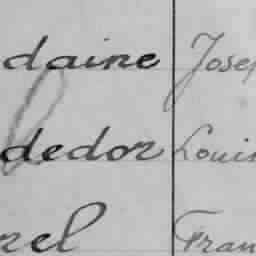 daine Josep
dedor Louis
rel Fran